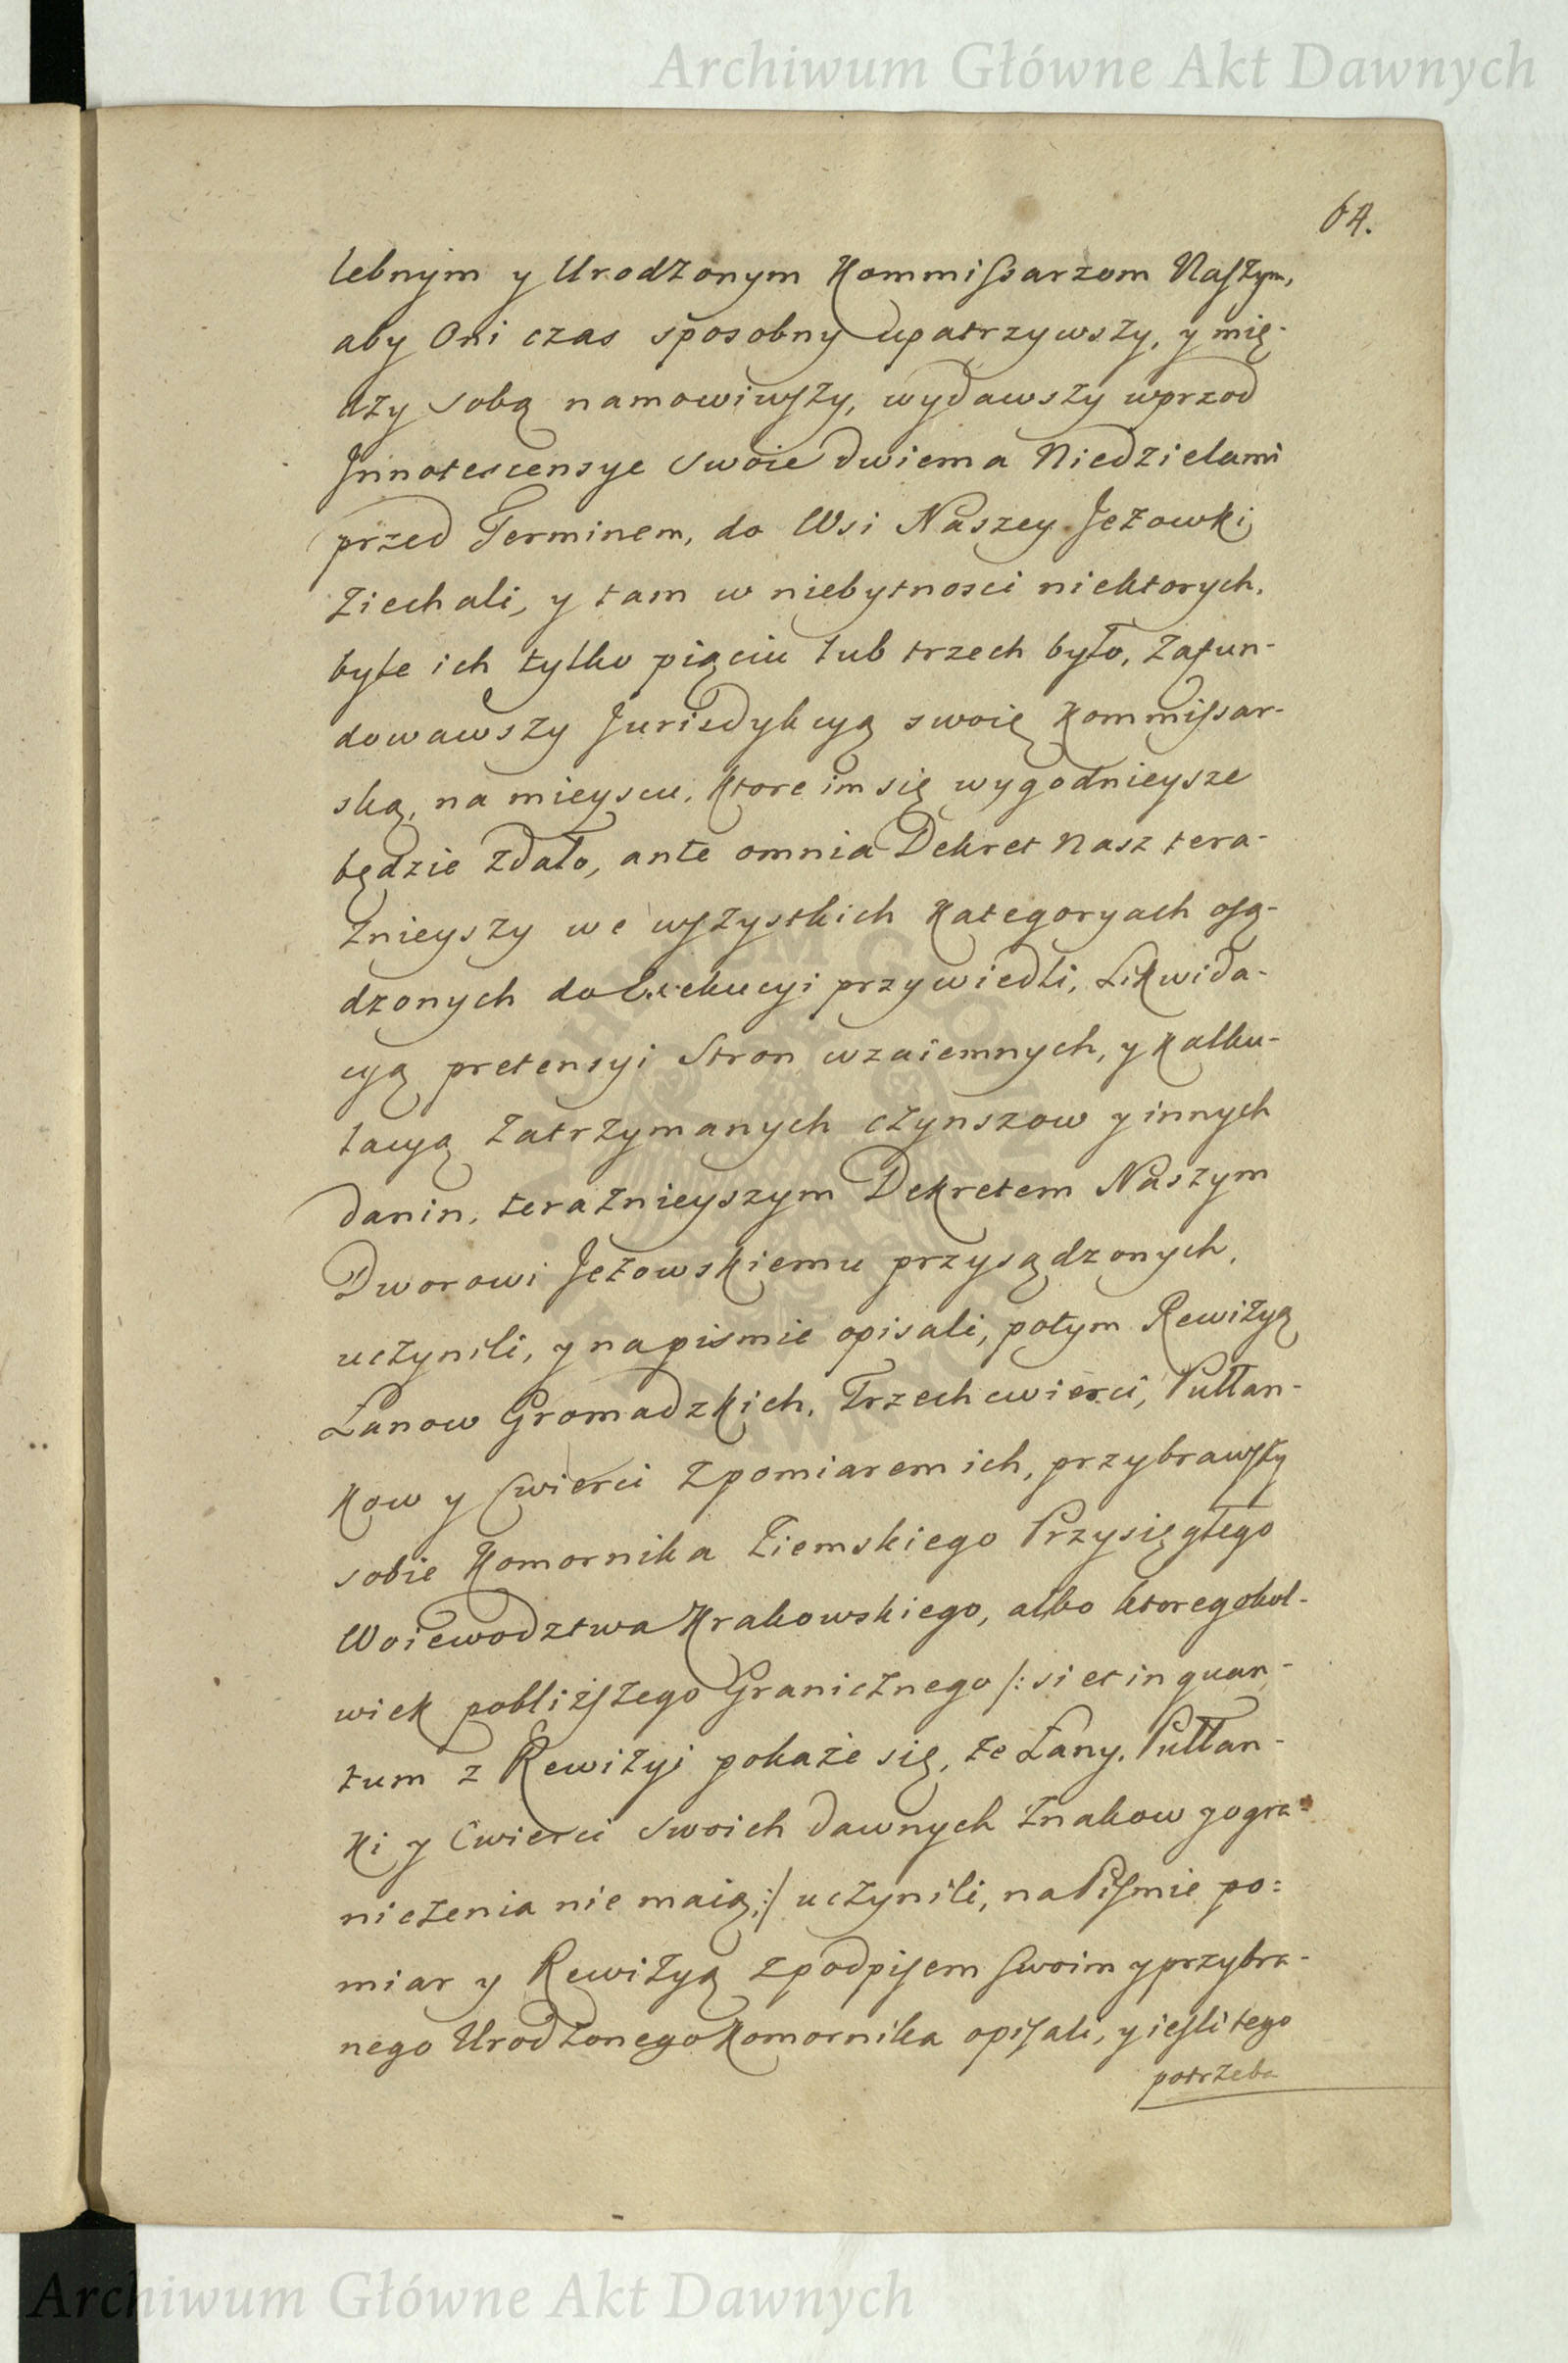 Archiwum Główne Akt Dawnych
64.
lebnym y Urodzonym Kommissarzom Naszym,
aby Oni czas sposobny upatrzywszy, y mię-
dzy sobą namowiwszy, wydawszy wprzod
Innotescensye swoie dwiema Niedzielami
przed Terminem, do Wsi Naszey Jeżowki
ziechali, y tam w niebytnosci niektorych,
byłe ich tylko pięciu lub trzech było, zafun-
dowawszy Jurisdykcyą swoię Kommissar-
ską, na mieyscu, ktore im się wygodnieysze
będzie zdało, ante omnia Dekret Nasz tera-
znieyszy we wszystkich Kategoryach osą-
dzonych do Exekucyi przywiedli, Likwida-
cyą pretensyi Stron wzaiemnych, y kalku-
lacyą zatrzymanych czynszow y innych
danin, teraznieyszym Dekretem Naszym
Dworowi Jeżowskiemu przysądzonych,
uczynili, y na pismie opisali, potym Rewizyą
Łanow Gromadzkich, Trzechcwierci, Pułłan-
kow y Cwierci z pomiarem ich, przybrawszy
sobie Komornika Ziemskiego Przysięgłego
Woiewodztwa Krakowskiego, albo ktoregokol-
wiek pobliższego Granicznego /: si et in quan-
tum z Rewizyi pokaże się, że Łany, Pułłan-
ki y Cwierci swoich dawnych znakow y ogra-
niczenia nie maią :/ uczynili, na Pismie po-
miar y Rewizyą z podpisem swoim y przybra-
nego Urodzonego Komornika opisali, y iesli tego
potrzeba
Archiwum Główne Akt Dawnych